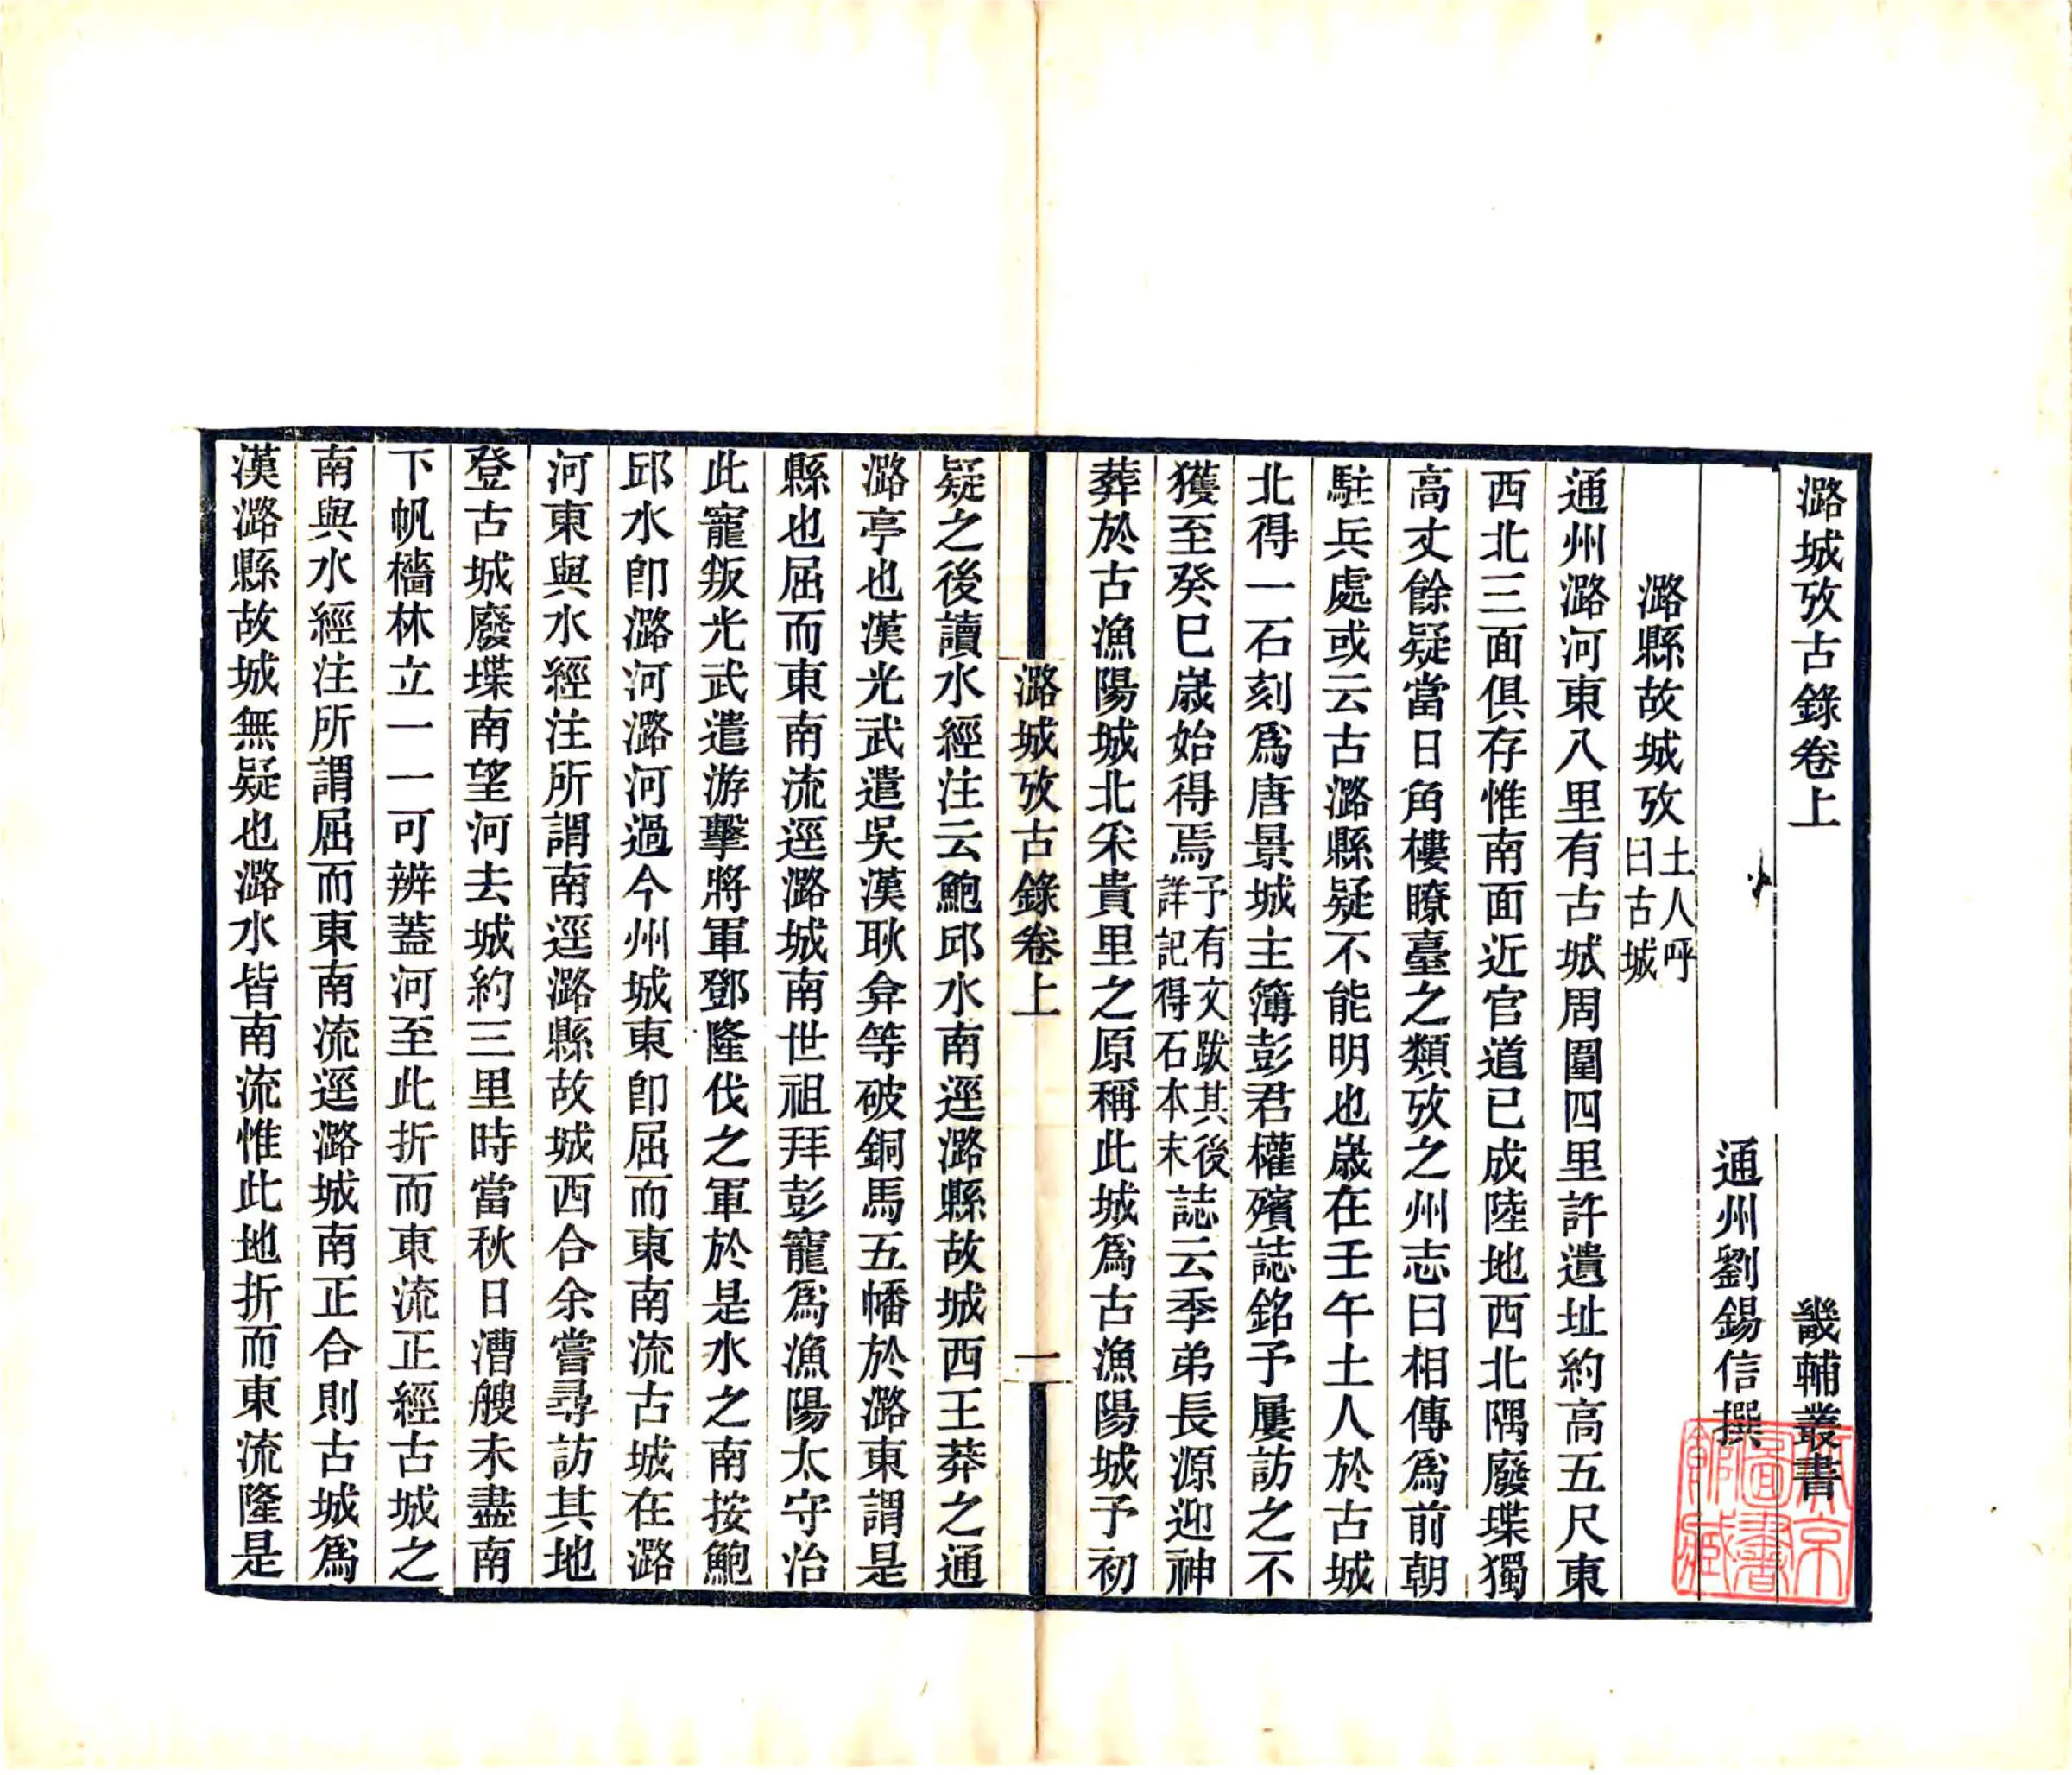 潞城攷古錄卷上　畿輔叢書
通州劉錫信撰
潞縣故城攷土人呼曰古城
通州潞河東八里有古城周圍四里許遺址約高五尺東
西北三面俱存惟南面近官道已成陸地西北隅廢堞獨
高丈餘疑當日角樓瞭臺之類攷之州志曰相傳爲前朝
駐兵處或云古潞縣疑不能明也歲在壬午土人於古城
北得一石刻爲唐景城主簿彭君權殯誌銘予屢訪之不
獲至癸巳歲始得焉予有文跋其後詳記得石本末誌云季弟長源迎神
葬於古漁陽城北采貴里之原稱此城爲古漁陽城予初
潞城攷古錄卷上　一
疑之後讀水經注云鮑邱水南逕潞縣故城西王莽之通
潞亭也漢光武遣吳漢耿弇等破銅馬五幡於潞東謂是
縣也屈而東南流逕潞城南世祖拜彭寵爲漁陽太守治
此寵叛光武遣游擊將軍鄧隆伐之軍於是水之南按鮑
邱水卽潞河潞河過今州城東卽屈而東南流古城在潞
河東與水經注所謂南逕潞縣故城西合余嘗尋訪其地
登古城廢堞南望河去城約三里時當秋日漕艘未盡南
下帆檣林立一一可辨蓋河至此折而東流正經古城之
南與水經注所謂屈而東南流逕潞城南正合則古城爲
漢潞縣故城無疑也潞水皆南流惟此地折而東流隆是